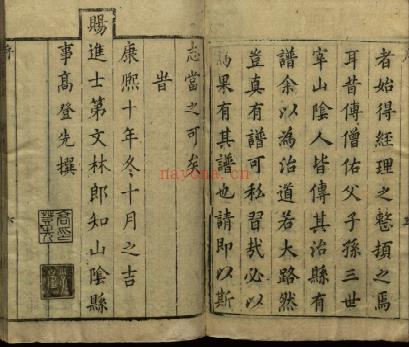 者始得經理之整頓之焉
耳昔傳僧佑父子孫三世
宰山陰人皆傳其治縣有
譜余以為治道若大路然
豈真有譜可私習哉必以
為果有其譜也請即以斯
志當之可矣
旹
康熙十年冬十月之吉
賜進士第文林郎知山陰縣
事高登先撰
nayona.cn